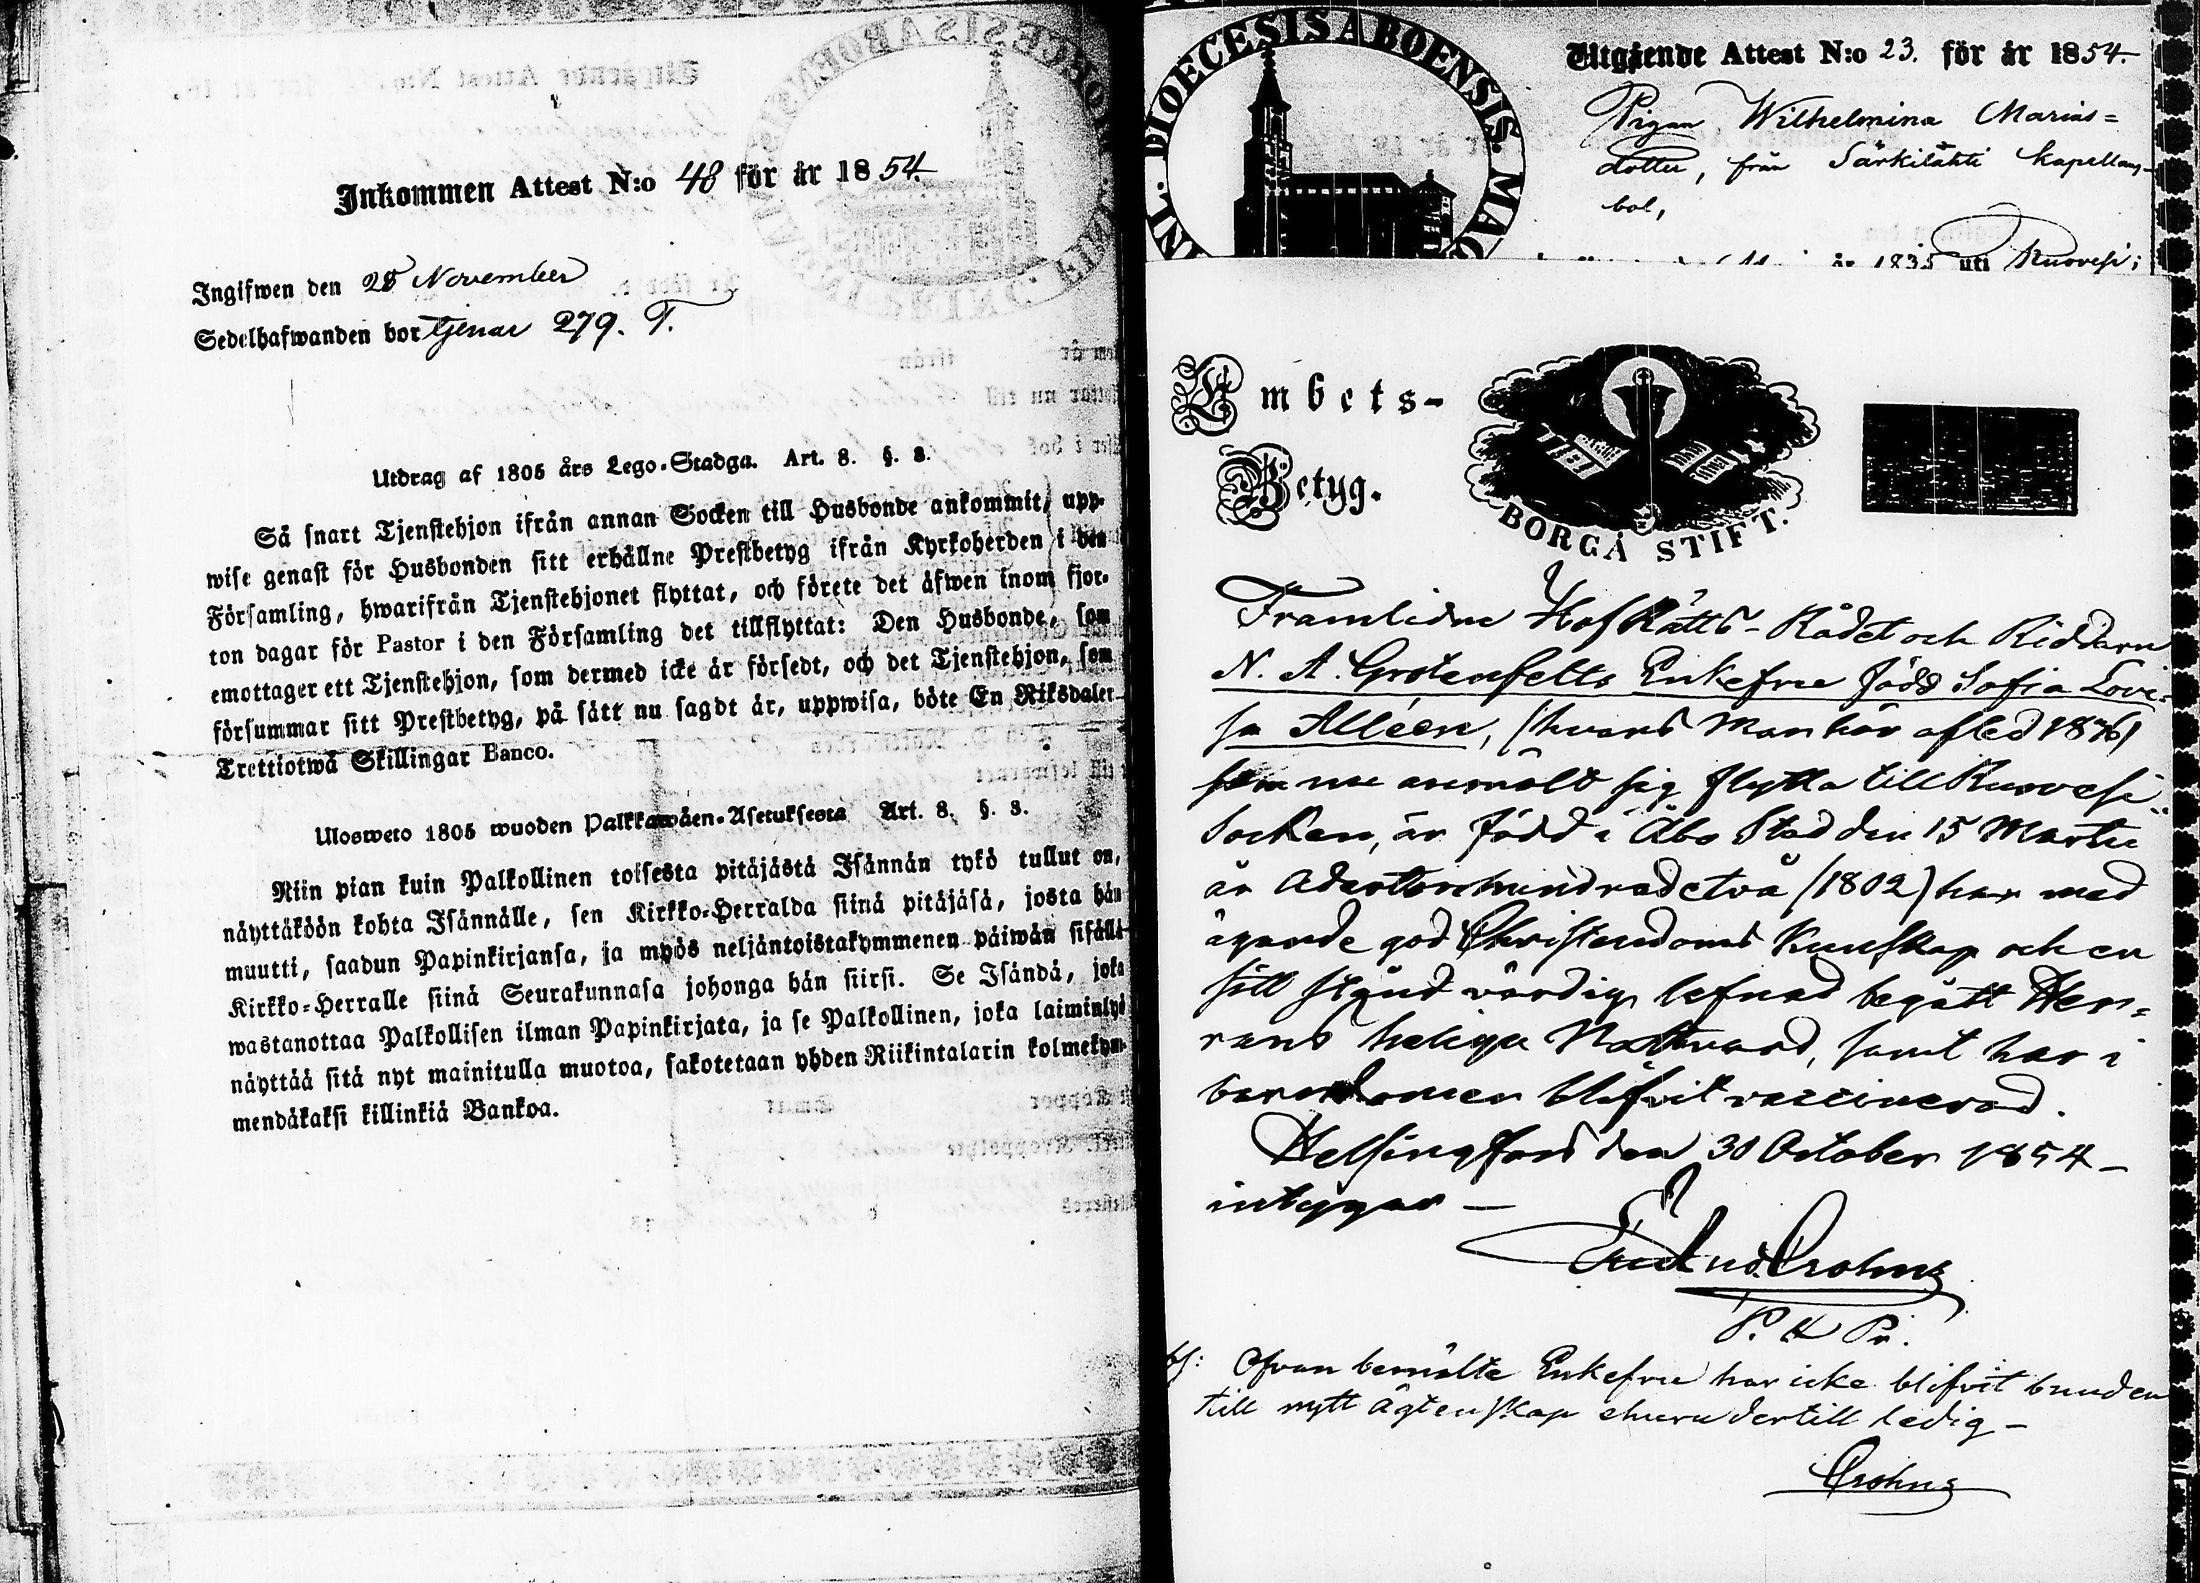 Inkommen Attest N:o 48 för år 1854.
Ingifwen den 28 November
Sedelhafwanden bor tjenar 279. T.
Utdrag af 1805 års Lego-Stadga. Art. 8. §. 8.
Så snart Tjenstehjon ifrån annan Socken till Husbonde ankommit, upp-
wise genast för Husbonden sitt erhållne Prestbetyg ifrån Kyrkoherden i den
Församling, hwarifrån Tjenstehjonet flyttat, och förete det äfwen inom fjor-
ton dagar för Pastor i den Församling det tillflyttat: Den Husbonde, som
emottager ett Tjenstehjon, som dermed icke är försedt, och det Tjenstehjon, som
försummar sitt Prestbetyg, på sätt nu sagdt är, uppwisa, böte En Riksdaler
Trettiotwå Skillingar Banco.
Ulosweto 1805 wuoden Palkkawäen-Asetuksesta Art. 8. §. 8.
Niin pian kuin Palkollinen toisesta pitäjästä Isännän tykö tullut on,
näyttäköön kohta Isännälle, sen Kirkko-Herralda siinä pitäjäsä, josta hän
muutti, saadun Papinkirjansa, ja myös neljäntoistakymmenen päiwän sisällä
Kirkko-Herralle siinä Seurakunnasa johonga hän siirsi. Se Isändä, joka
wastanottaa Palkollisen ilman Papinkirjata, ja se Palkollinen, joka laiminlyö
näyttää sitä nyt mainitulla muotoa, sakotetaan yhden Riikintalarin kolmekym-
mendäkaksi killinkiä Bankoa.
DIOECESIS ABOENSIS MAG
Utgående Attest N:o 23. för år 1854.
Pigan Wilhelmina Marias=
dotter, från Särkilahti kapellans-
bol,
år 1835 uti Ruovesi;
Embets-
Betyg.
BORGÅ STIFT.
Framlidne HofRätts-Rådet och Riddaren
N. A. Grotenfelts Enkefru född Sofia Lovi-
sa Alléen, (hvars Man här afled 18
som nu anmält sig flytta till Ruovesi
Socken, är född i Åbo Stad den 15 Martii
år Adertonhundradetvå (1802) har med
ägande god Christendoms Kunskap och en
sitt stånd värdig lefnad begått Her-
rans heliga Nattvard, samt har i
barndomen blifvit vaccinerad.
Helsingfors den 30 October 1854 -
intygar -
Crohns
P. H. Pr.
Ofvan bemälte Enkefru har icke blifvit bunden
till nytt Ägtenskap utan dertill ledig -
Crohns